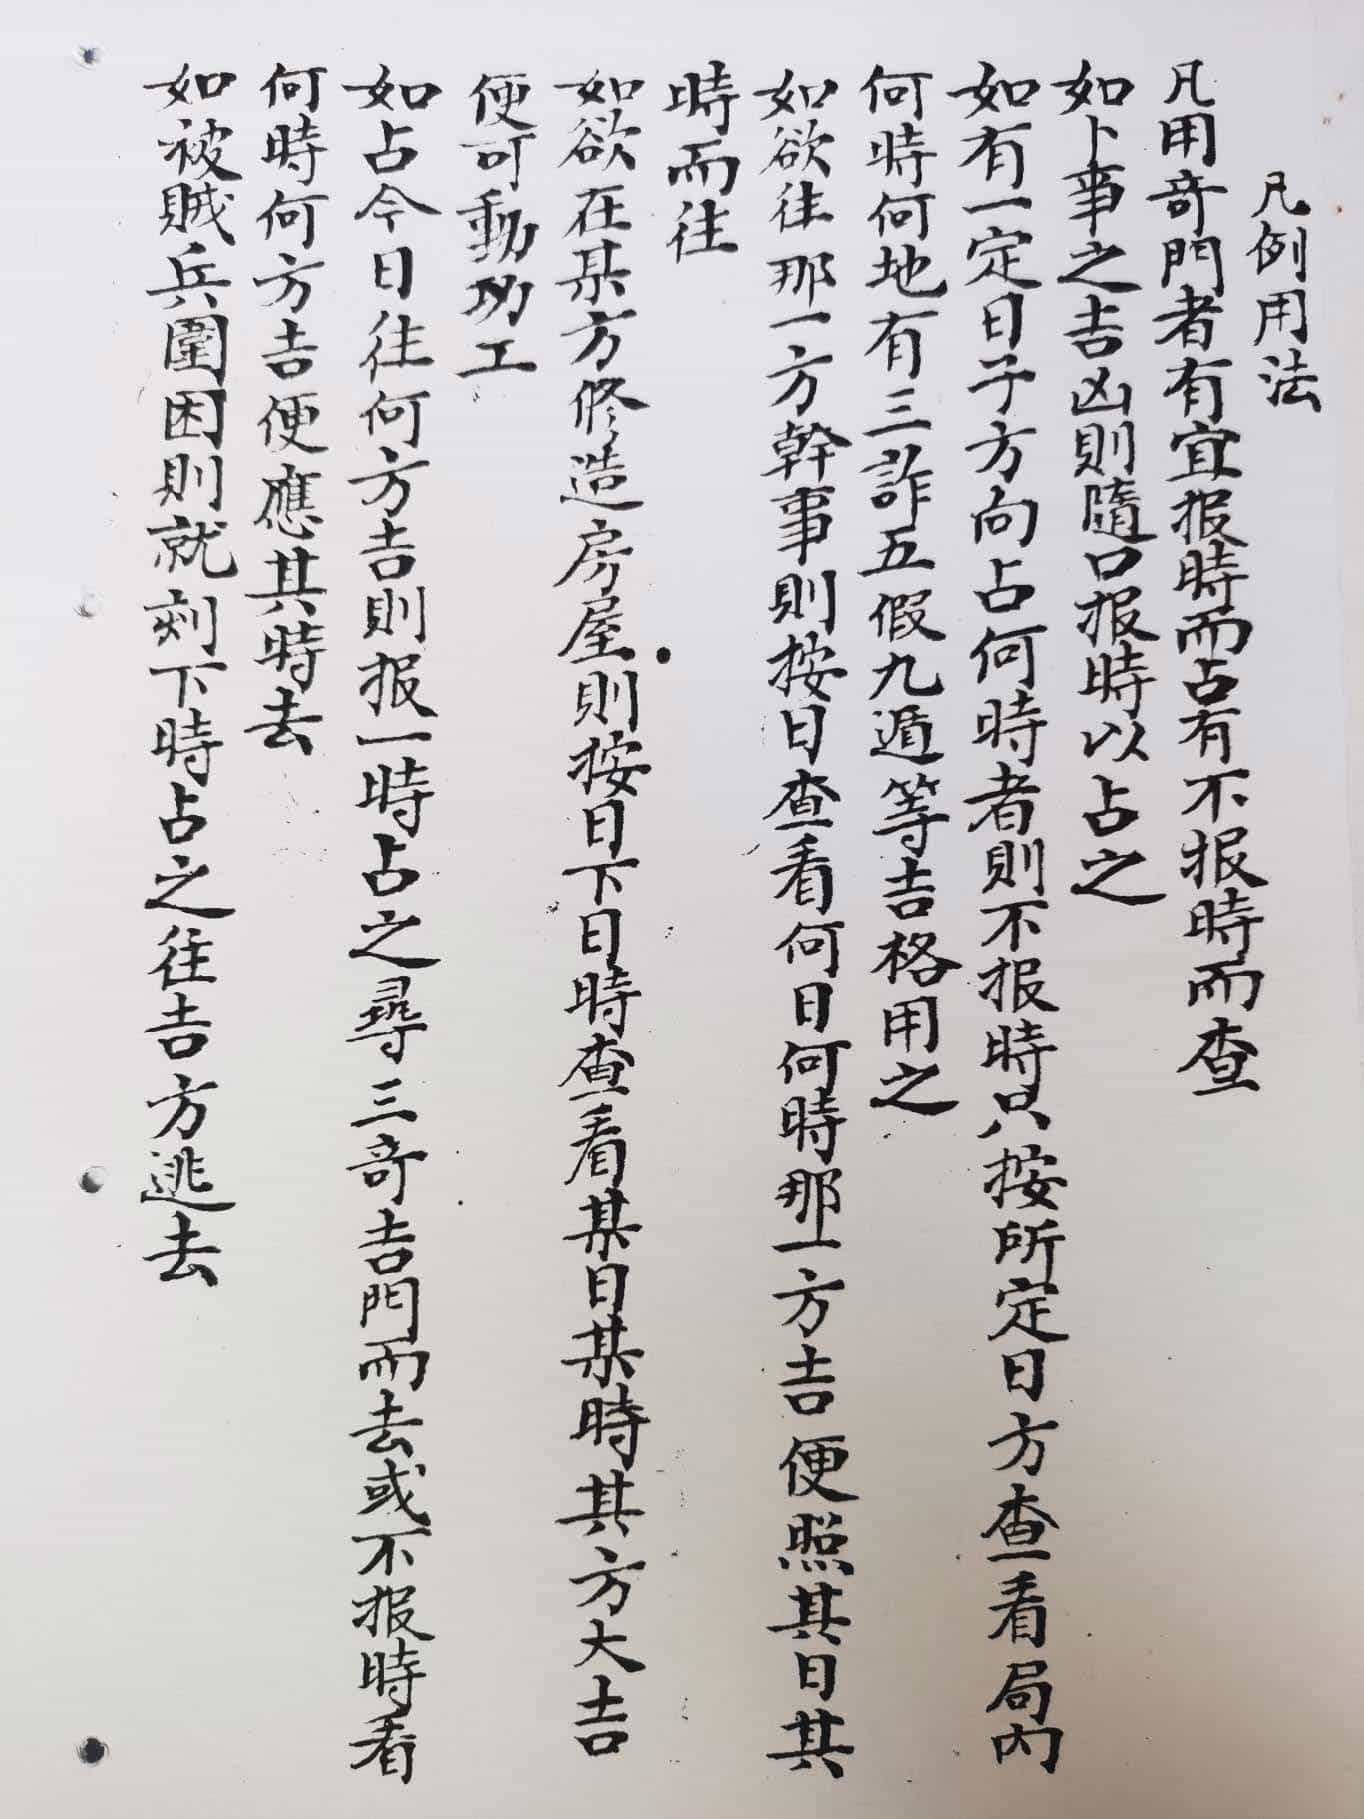 凡例用法
凡用竒門者有宜报時而占有不报時而查
如卜事之吉凶則隨口报時以占之
如有一定日子方向占何時者則不报時只按所定日方查看局内
何時何地有三詐五假九遁等吉格用之
如欲往那一方幹事則按日查看何日何時那一方吉便照其日其
時而往
如欲在某方修造房屋則按日下日時查看某日某時其方大吉
便可動功工
如占今日往何方吉則报一時占之尋三竒吉門而去或不报時看
何時何方吉便應其時去
如被贼兵圍困則就刻下時占之往吉方逃去